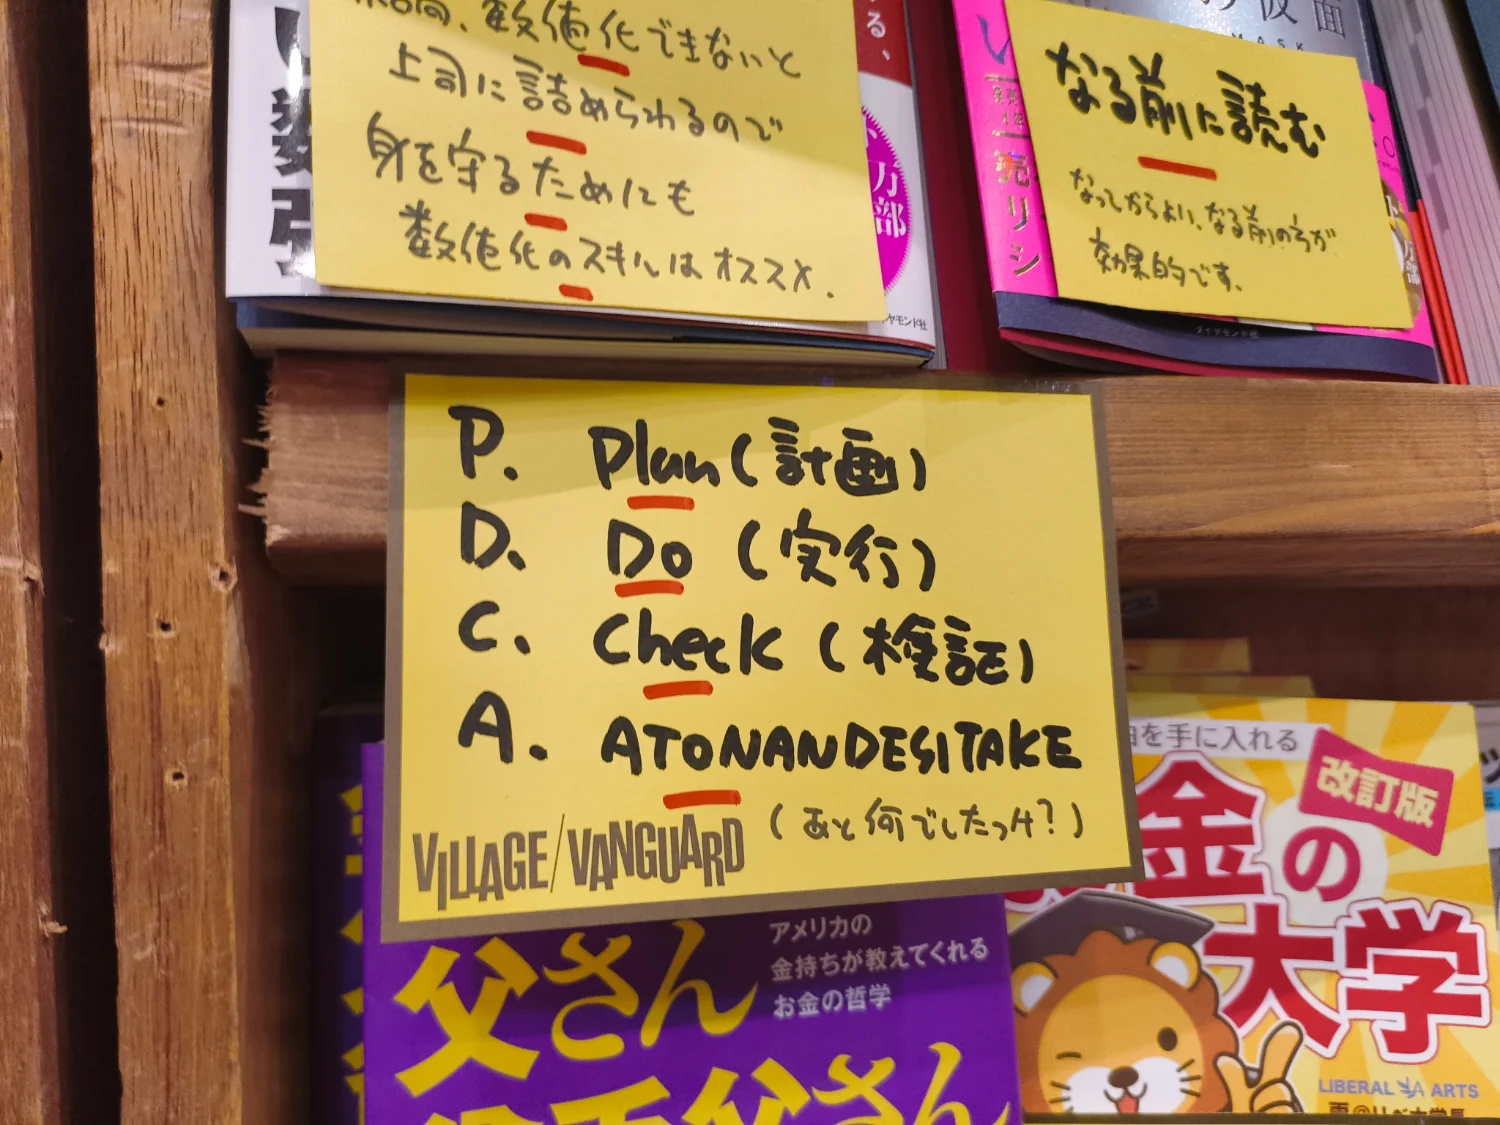 数値化できないと
上司に詰められるので
身を守るためにも
数値化のスキルはオススメ.
る、
力
部
ヤモンド社
売リシ
面
MASK
なる前に読む
なってからより、なる前の方が
効果的です.
ダイヤモンド社
P. Plan(計画)
D. Do (実行)
C. Check (検証)
A. ATONANDESITAKE
(あと何でしたっけ?)
VILLAGE/VANGUARD
父さん
アメリカの
金持ちが教えてくれる
お金の哲学
父さん
を手に入れる
改訂版
金の
大学
LIBERAL ARTS